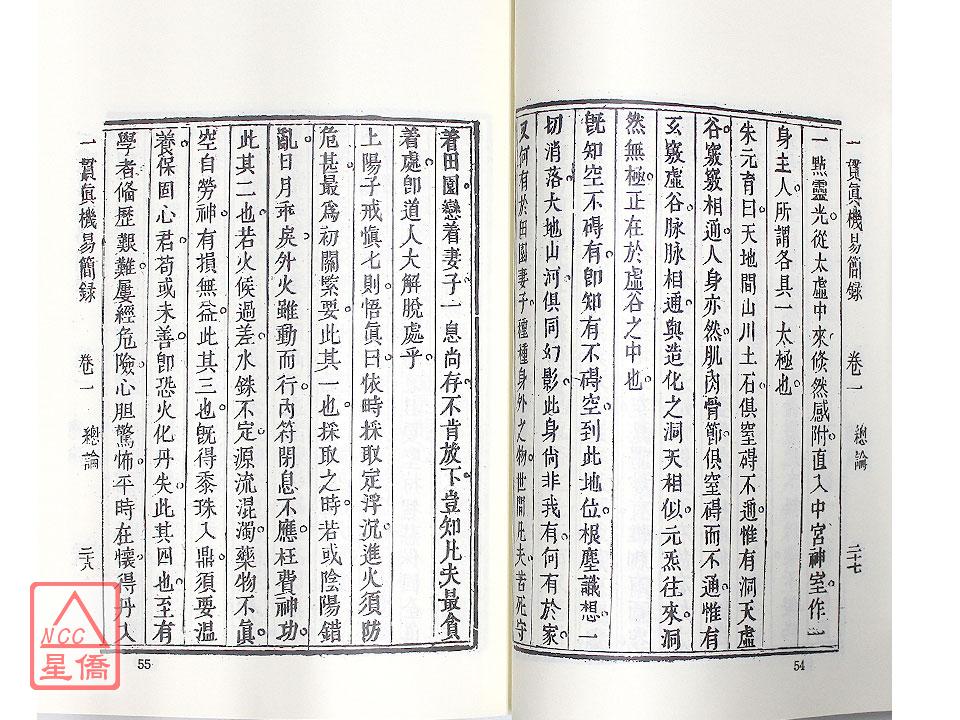 一貫眞機易簡録 卷一 總論 二十七
一點靈光從太虛中來倏然感附直入中宮神室作一
身主人所謂各具一太極也
朱元育曰天地間山川土石俱窒碍不通惟有洞天虛
谷竅竅相通人身亦然肌肉骨節俱窒碍而不通惟有
玄竅虛谷脉脉相通與造化之洞天相似元炁往來洞
然無極正在於虛谷之中也
旣知空不碍有卽知有不碍空到此地位根塵識想一
切消落大地山河俱同幻影此身尙非我有何有於家
又何有於田園妻子種種身外之物世間凡夫苦死守
54
着田園戀着妻子一息尙存不肯放下豈知凡夫最貪
着處卽道人大解脫處乎
上陽子戒愼七則悟眞曰依時採取定浮沉進火須防
危甚最爲初關緊要此其一也採取之時若或陰陽錯
亂日月乖戾外火雖動而行內符閉息不應枉費神功
此其二也若火候過差水銖不定源流混濁藥物不眞
空自勞神有損無益此其三也旣得黍珠入鼎須要溫
養保固心君苟或未善卽恐火化丹失此其四也至有
學者俻歷艱難屢經危險心胆驚怖平時在懷得丹入
一貫眞機易簡録 卷一 總論 二十八
55
NCC
星僑